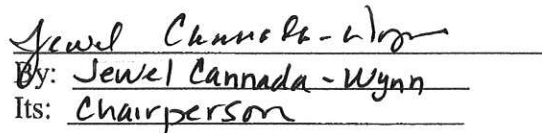 Jewel Cannada-Wynn
By: Jewel Cannada-Wynn
Its: Chairperson